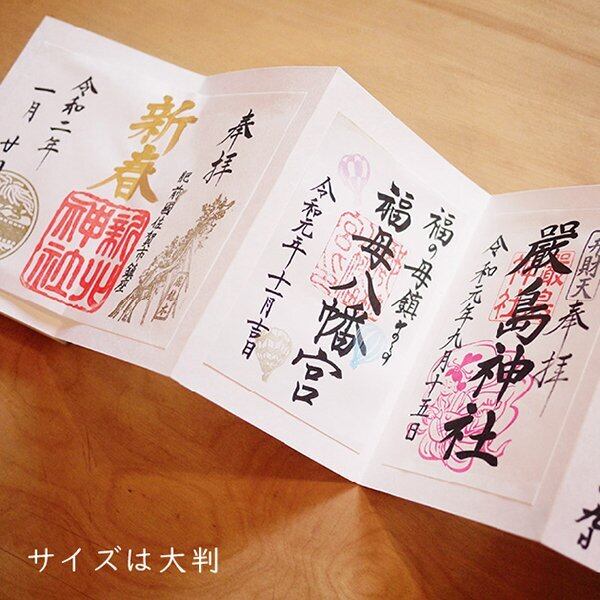 弁財天
奉拝
嚴島神社
令和元年九月十五日
福の母鎮
福母八幡宮
令和元年十一月吉日
奉拝
肥前國佐賀市鎮座
新春
令和二年
一月
サイズは大判